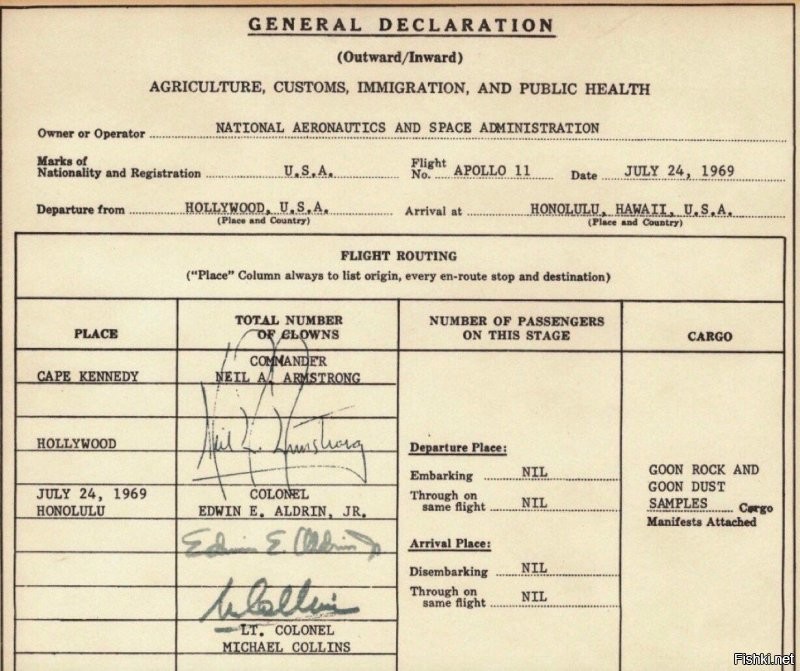 GENERAL DECLARATION
(Outward/Inward)
AGRICULTURE, CUSTOMS, IMMIGRATION, AND PUBLIC HEALTH
Owner or Operator NATIONAL AERONAUTICS AND SPACE ADMINISTRATION
Marks of
Nationality and Registration U.S.A. Flight
No. APOLLO 11 Date JULY 24, 1969
Departure from HOLLYWOOD, U.S.A. Arrival at HONOLULU, HAWAII, U.S.A.
(Place and Country) (Place and Country)
FLIGHT ROUTING
("Place" Column always to list origin, every en-route stop and destination)
PLACE
TOTAL NUMBER
OF CLOWNS
NUMBER OF PASSENGERS
ON THIS STAGE
CARGO
CAPE KENNEDY
HOLLYWOOD
JULY 24, 1969
HONOLULU
COMMANDER
NEIL A. ARMSTRONG
Neil A. Armstrong
COLONEL
EDWIN E. ALDRIN, JR.
Edwin E. Aldrin Jr
M Collins
LT. COLONEL
MICHAEL COLLINS
Departure Place:
Embarking NIL
Through on
same flight NIL
Arrival Place:
Disembarking NIL
Through on
same flight NIL
GOON ROCK AND
GOON DUST
SAMPLES Cargo
Manifests Attached
Fishki.net